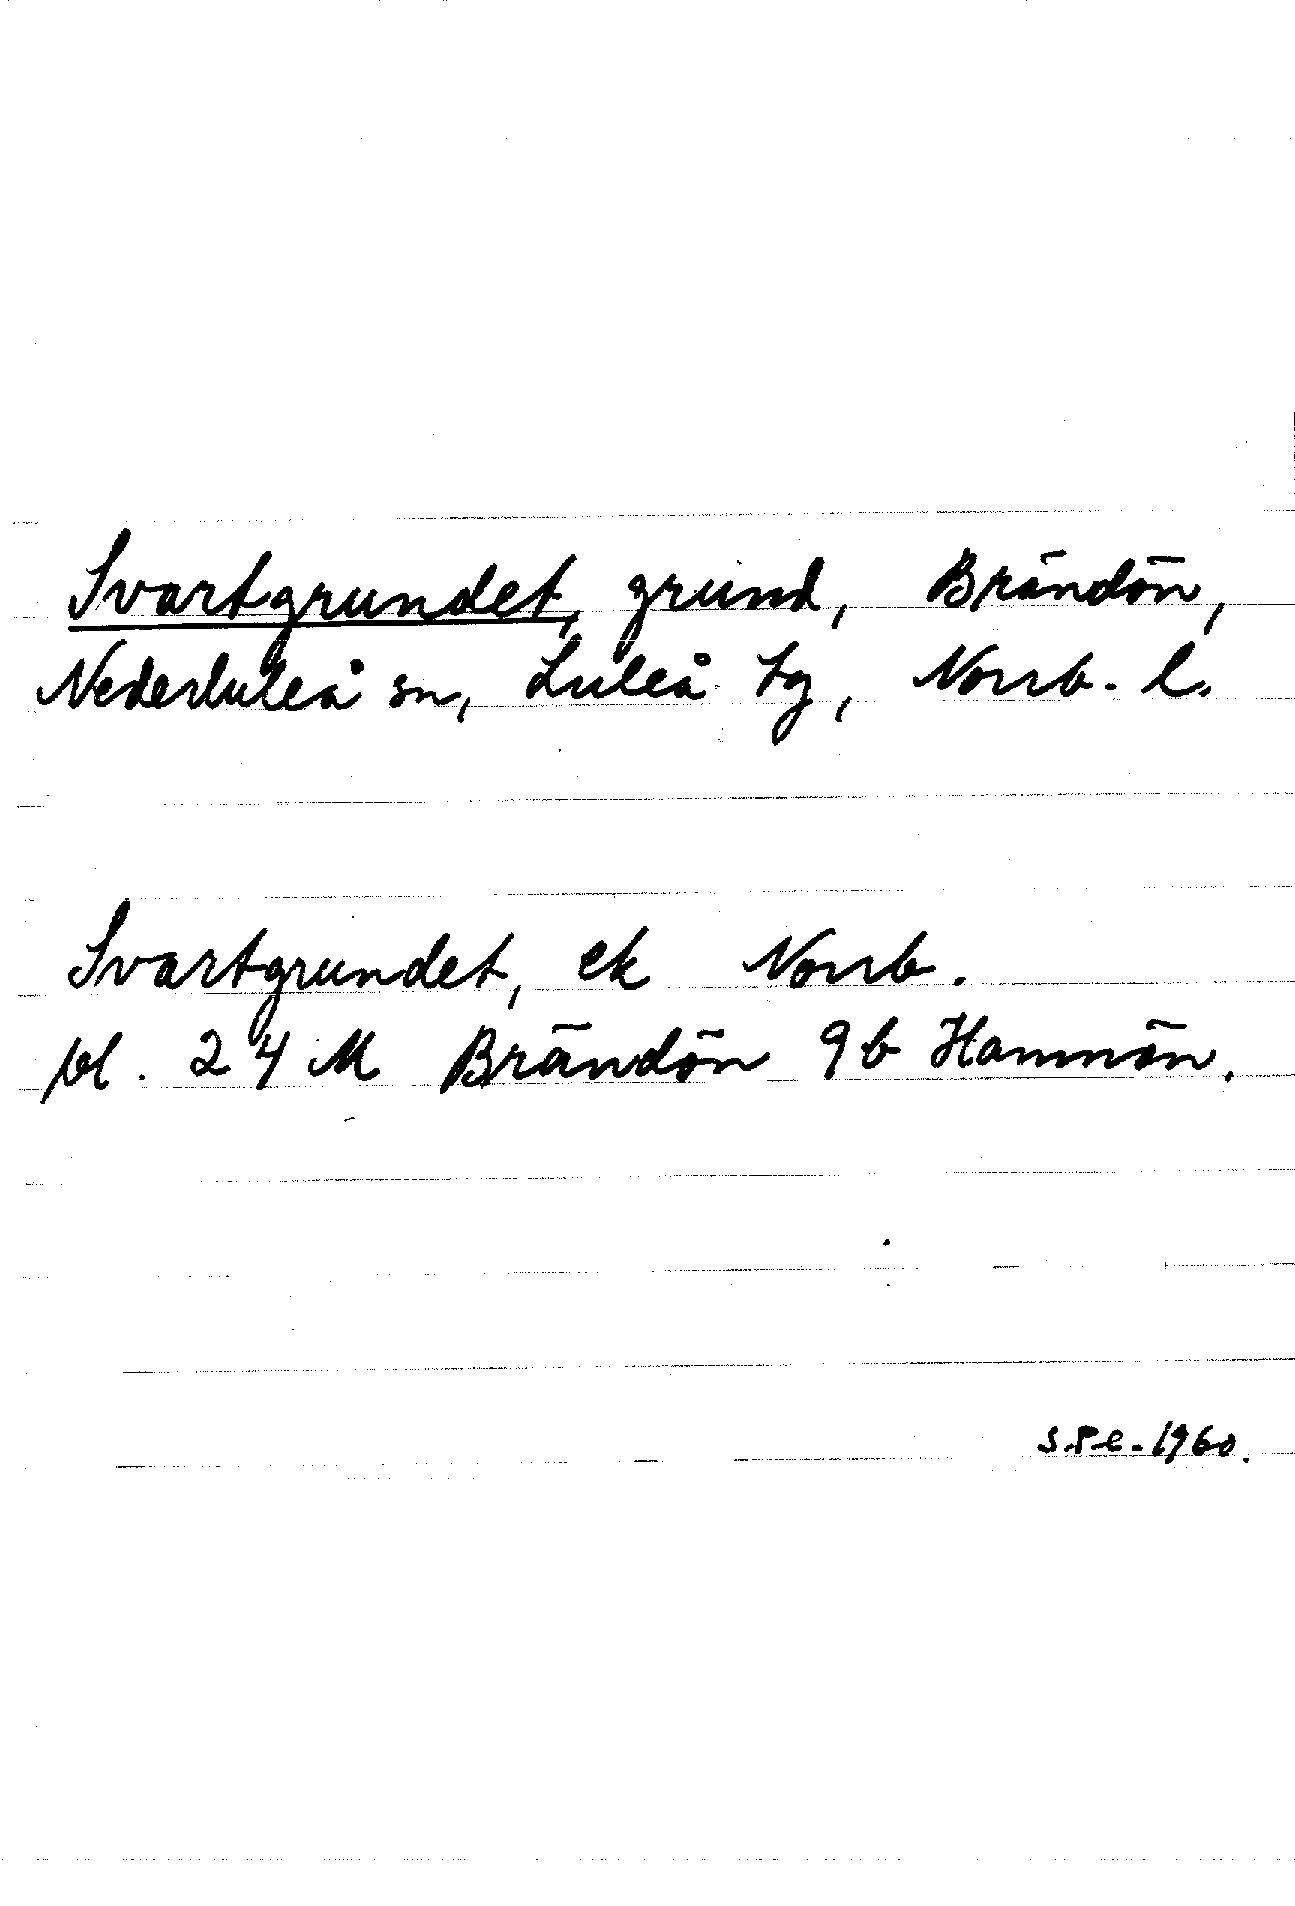 Svartgrundet, grund, Brändön,
Nederluleå sn, Luleå tg, Norrb. l.
Svartgrundet, ek Norrb.
bl. 24 M Brändön 9b Hammön.
s.P.e. 1960.